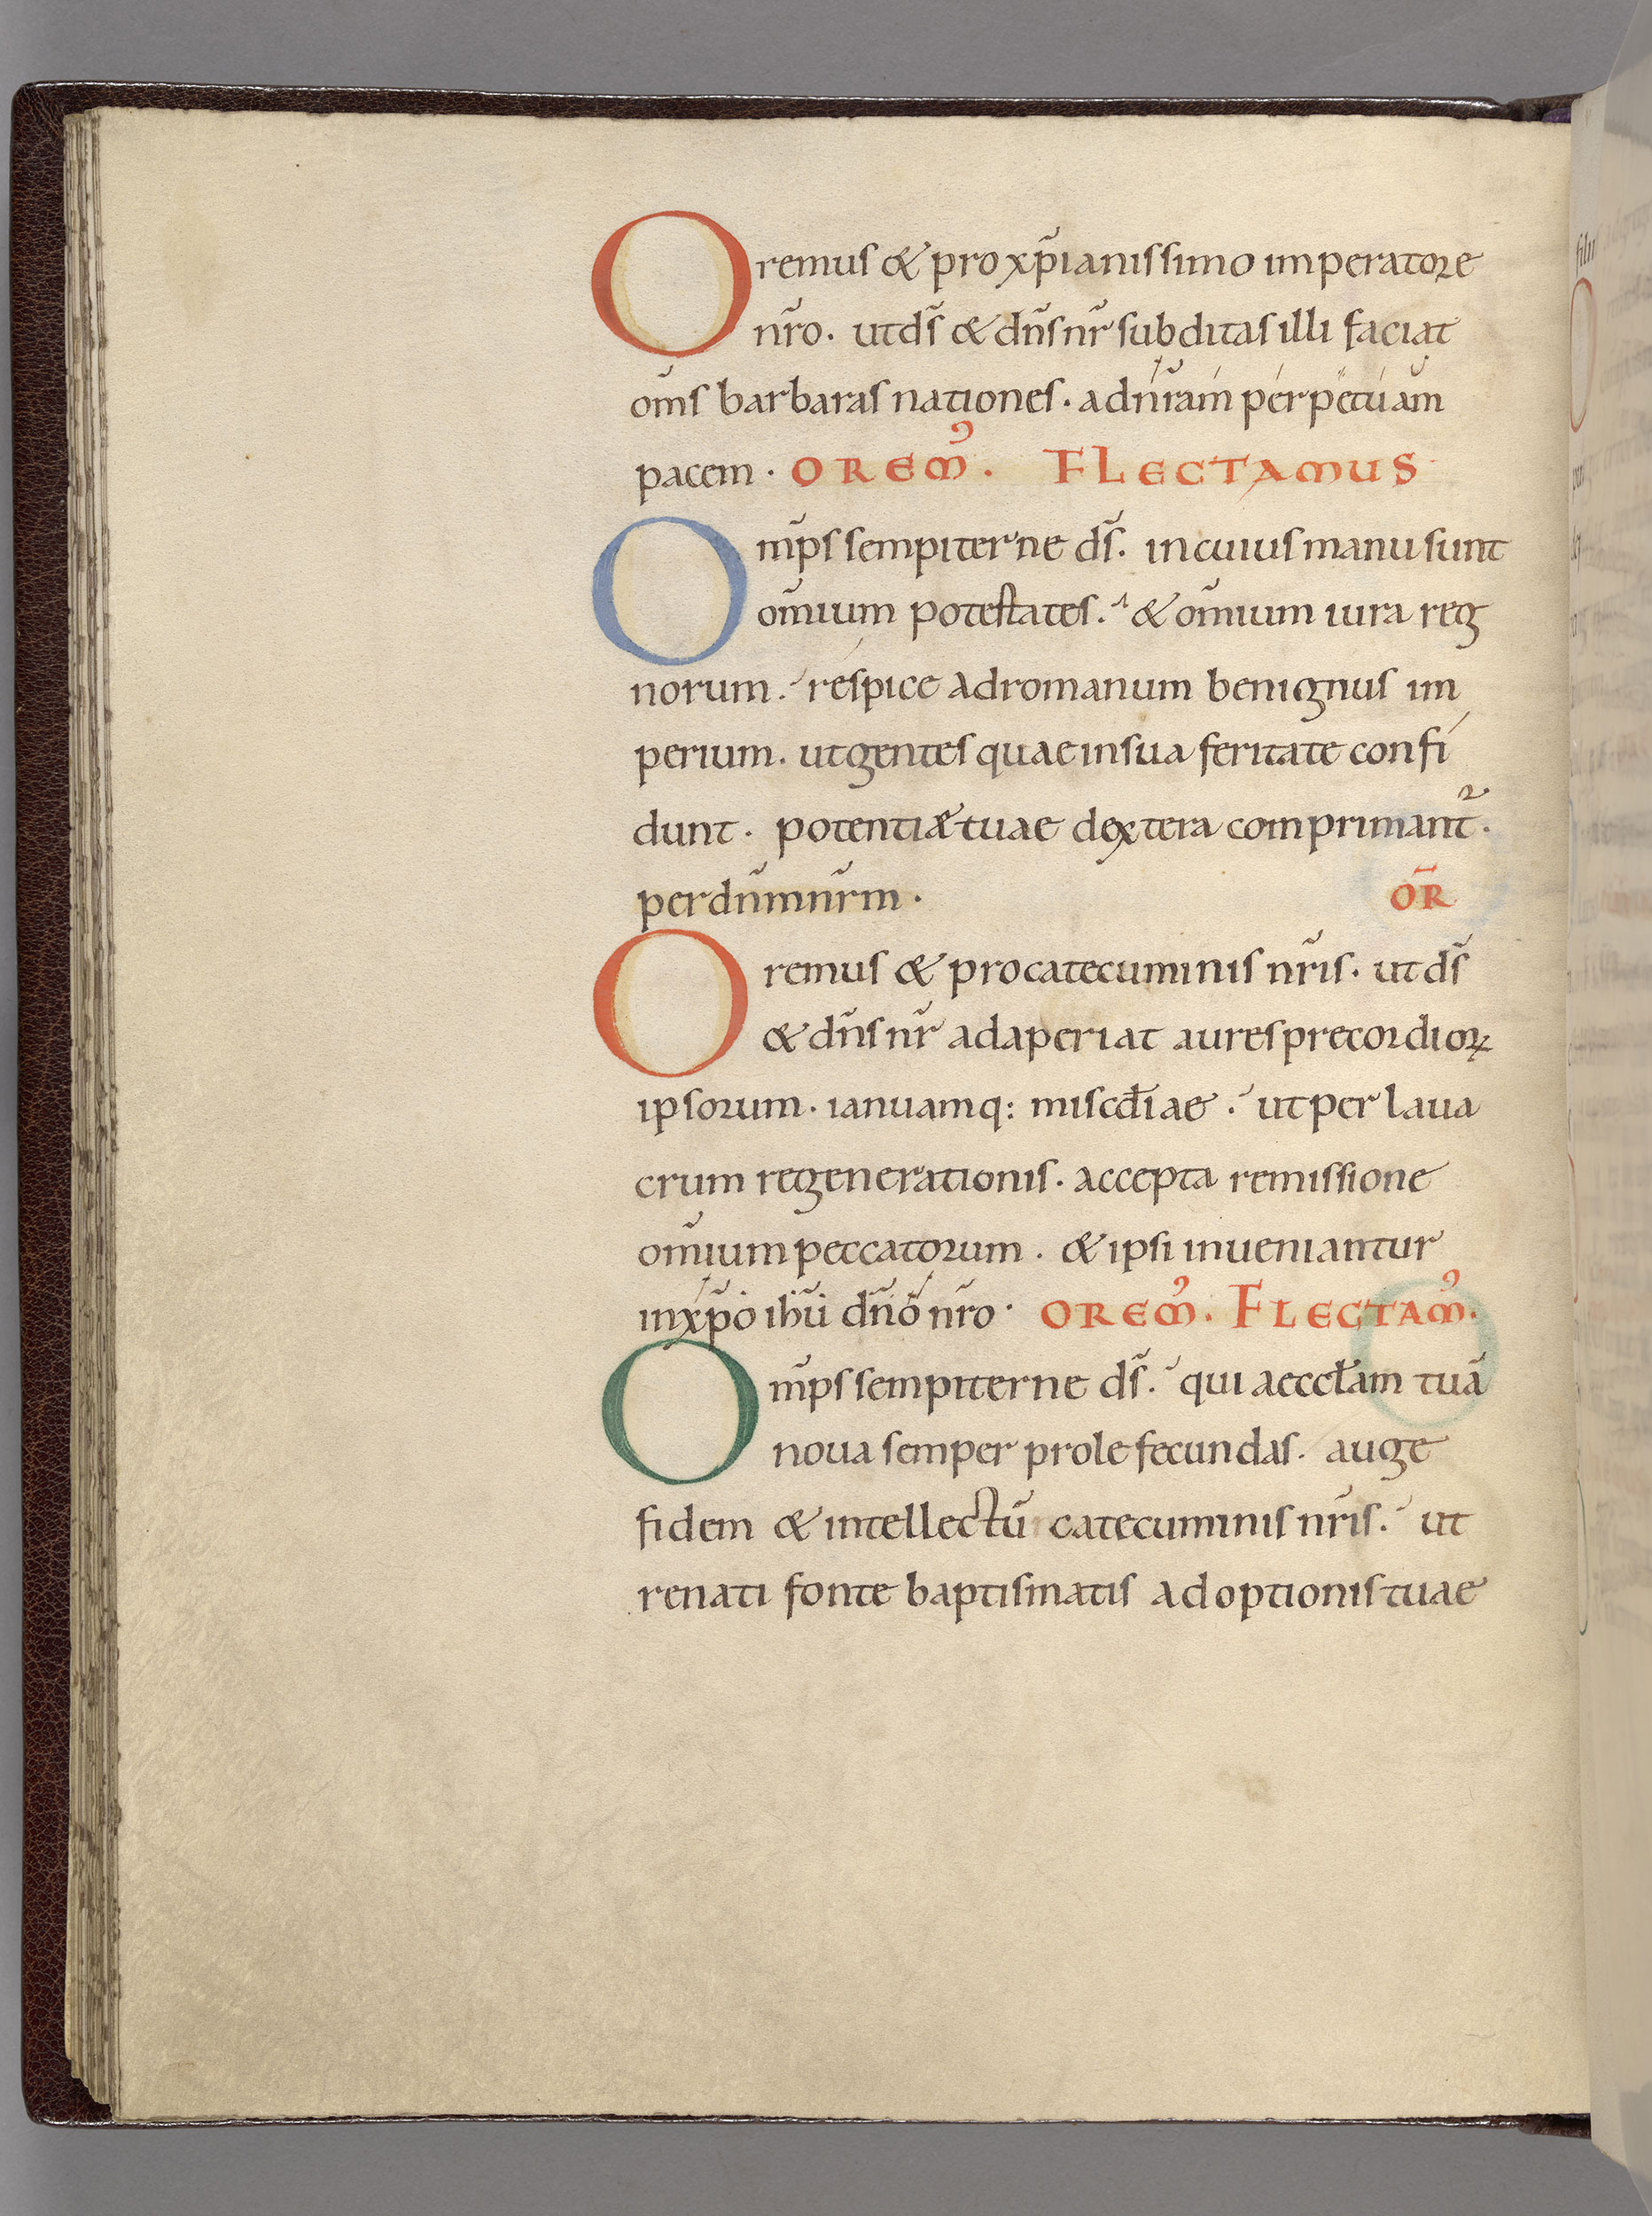 Oremus & pro xp̃ianissimo imperatore
nr̃o. ut ds̃ & dñs nr̃ subditas illi faciat
om̃s barbaras nationes. ad nr̃am perpetuam
pacem. OREM᾽. FLECTAMUS
Om̃ps sempiterne ds̃. in cuius manu sunt
om̃ium potestates. & om̃ium iura reg
norum. respice ad romanum benignus im
perium. ut gentes quae in sua feritate confi
dunt. potentiæ tuae dextera comprimant̃.
per dñm nr̃m.
OR̃
Oremus & pro catecuminis nr̃is. ut ds̃
& dñs nr̃ adaperiat aures precordioꝝ
ipsorum. ianuamq: misc̄diae. ut per laua
crum regenerationis. accepta remissione
om̃ium peccatorum. & ipsi inueniantur
in xp̃o ihũ dño nr̃o. OREM᾽. FLECTAM᾽.
Om̃ps sempiterne ds̃. qui aeccłam tuã
noua semper prole fecundas. auge
fidem & intellectũ catecuminis nr̃is. ut
renati fonte baptismatis adoptionis tuae